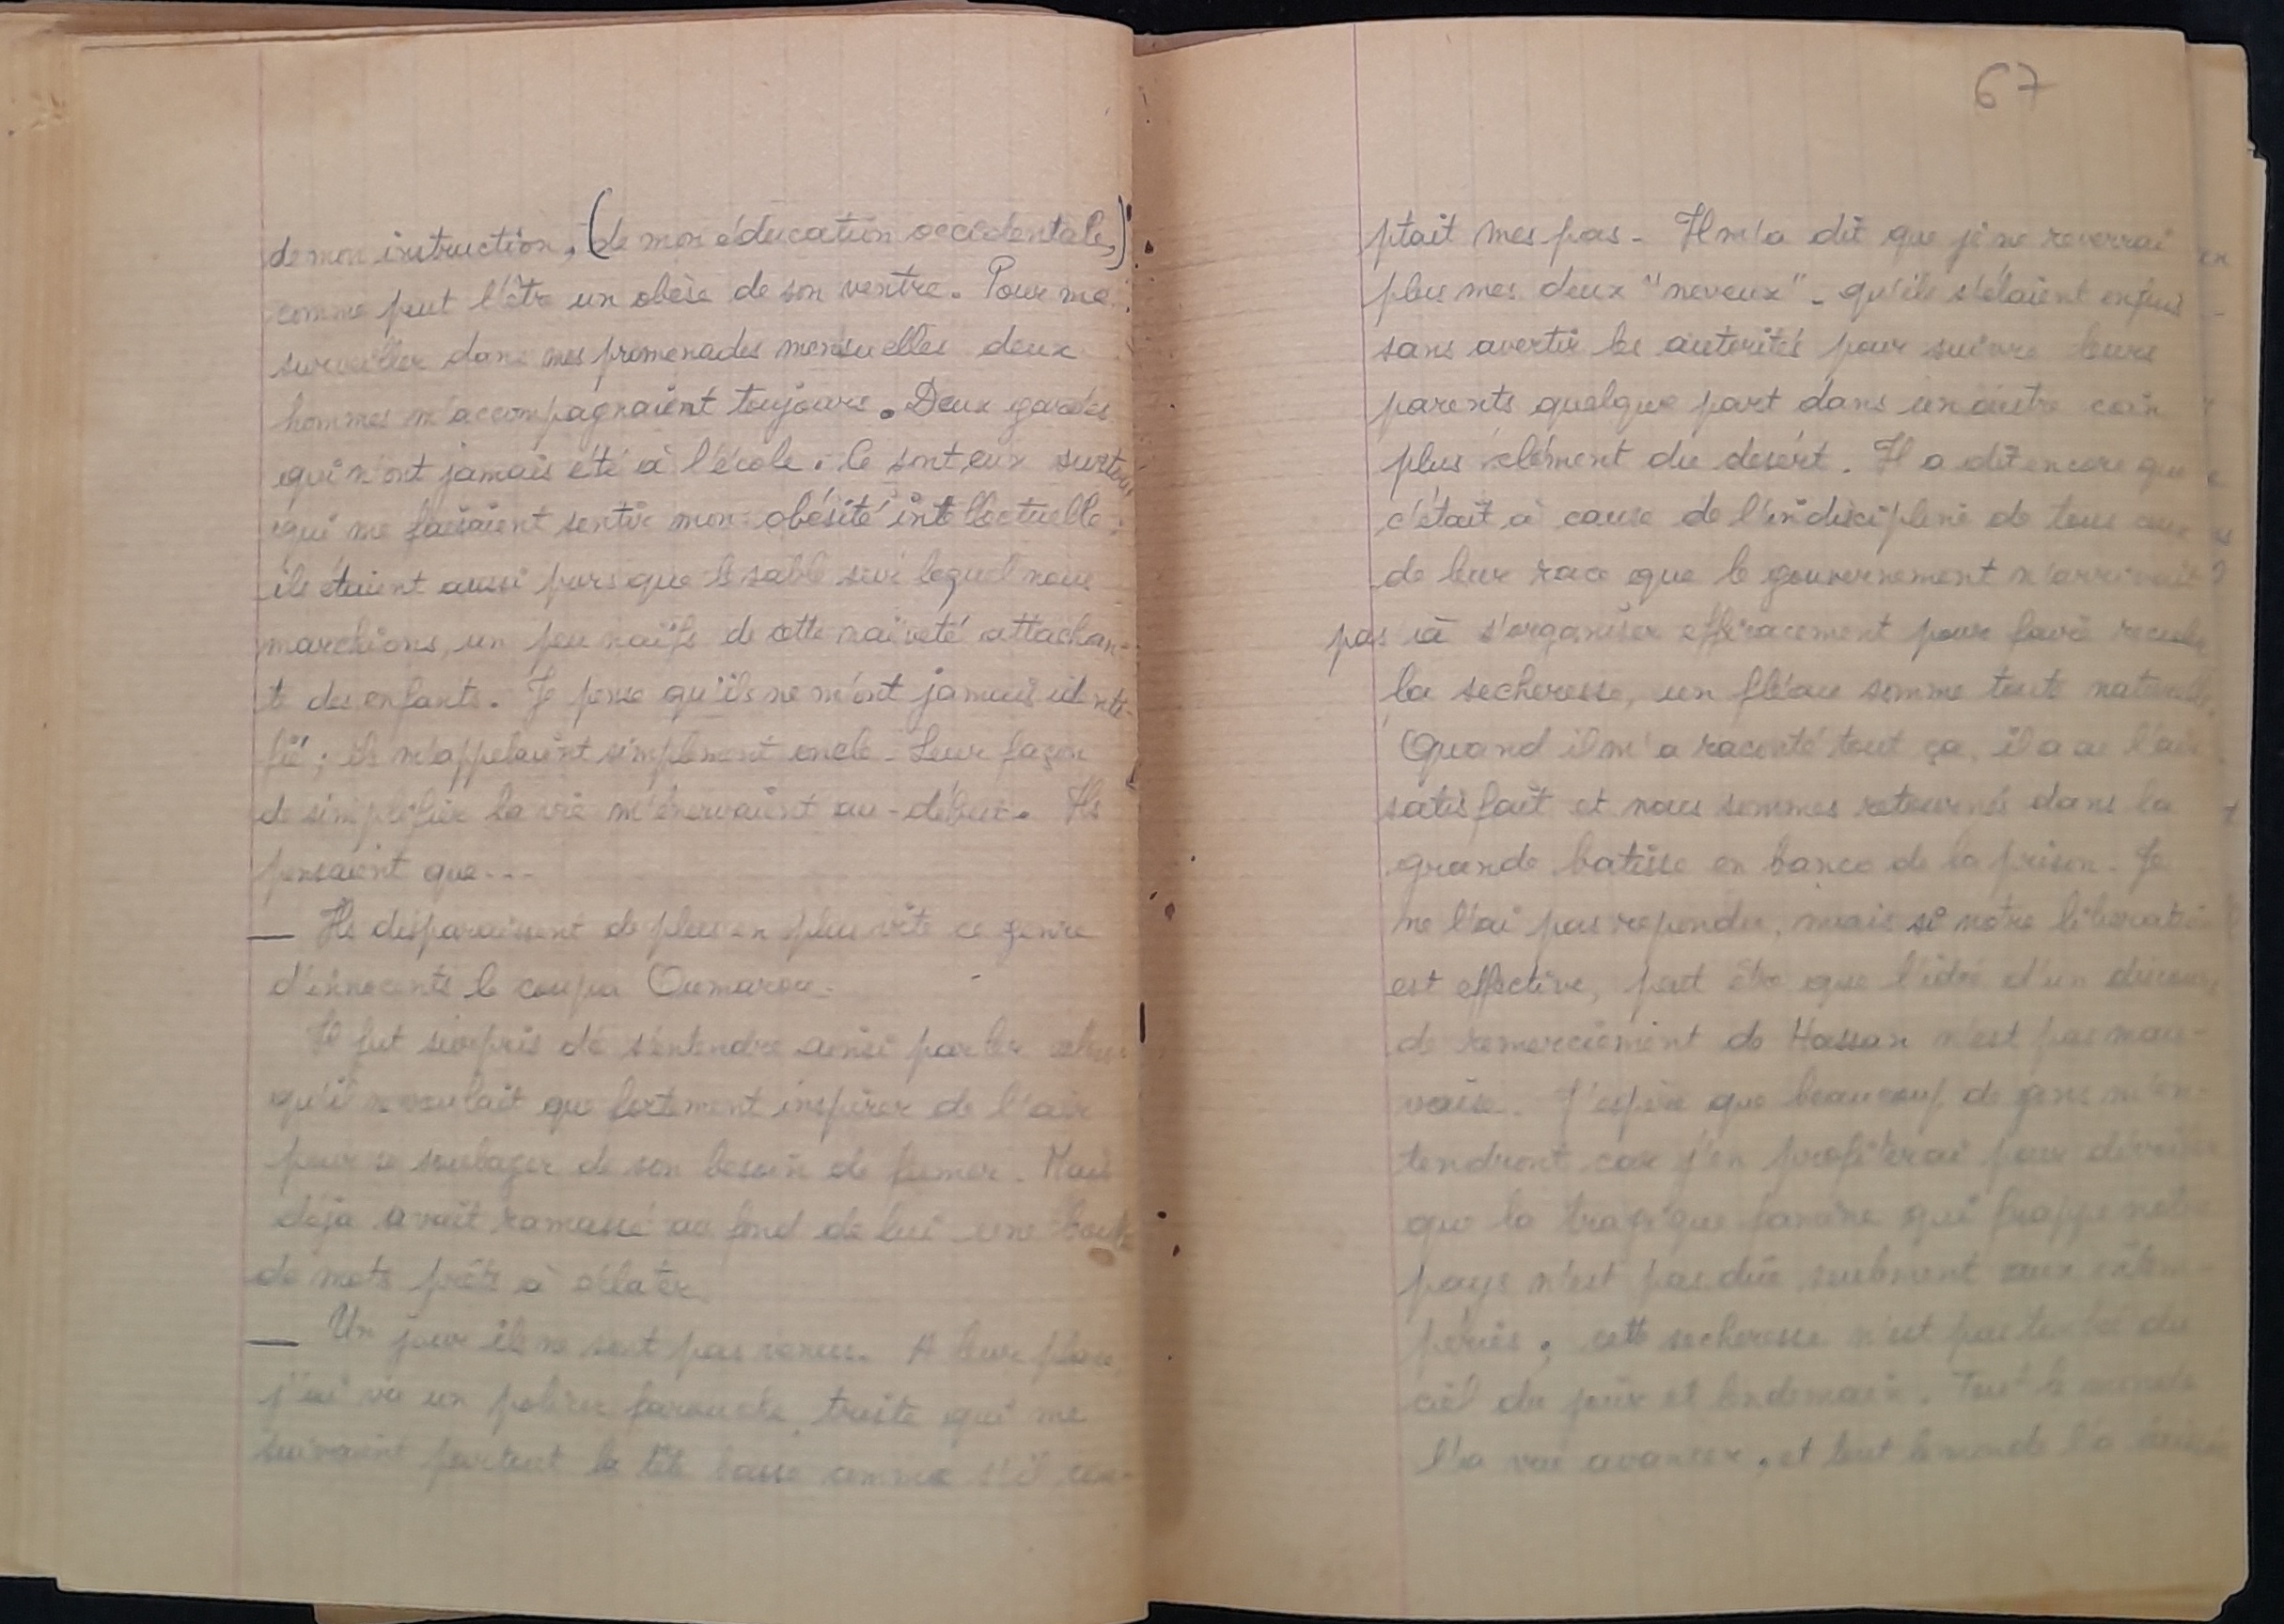 de mon instruction, (de mon éducation occidentale,)
comme peut l'être un obèse de son ventre. Pour me
surveiller dans mes promenades mensuelles deux
hommes m'accompagnaient toujours. Deux gardes
qui n'ont jamais été à l'école. Ce sont eux surtout
qui me faisaient sentir mon obésité intellectuelle :
ils étaient aussi purs que le sable sur lequel nous
marchions, un peu naïfs de cette naïveté attachan-
te des enfants. Je pense qu'ils ne m'ont jamais identi-
fié ; ils m'appelaient simplement oncle. Leur façon
de simplifier la vie m'énervaient au-début. Ils
pensaient que...
— Ils disparaissent de plus en plus vite ce genre
d'innocents le coupa Oumarou.
Il fut surpris de s'entendre ainsi parler
qu'il ne voulait que fortement inspirer de l'air
pour se soulager de son besoin de fumer. Mais
déjà avait ramassé au fond de lui une boule
de mots prêts à éclater
— Un jour ils ne sont pas venus. A leur place
j'ai vu un policier farouche, triste qui me
suivaient partout la tête basse comme s'il com-
67
ptait mes pas. Il m'a dit que je ne reverrai
plus mes deux "neveux". qu'ils s'étaient enfuis
sans avertir les autorités pour suivre leurs
parents quelque part dans un autre coin
plus clément du desért. Il a dit encore que
c'était à cause de l'indiscipline de tous ceux
de leur race que le gouvernement n'arrivait
pas à s'organiser efficacement pour faire reculer
la secheresse, un fléau somme toute naturelle.
Quand il m'a raconté tout ça, il a eu l'air
satisfait et nous sommes retournés dans la
grande batisse en banco de la prison. Je
ne l'ai pas repondu, mais si notre libération
est effective, peut être que l'idée d'un discours
de remerciement de Hassan n'est pas mau-
vaise. J'espère que beaucoup de gens m'en-
tendront car j'en profiterai pour dévoiler
que la tragique famine qui frappe notre
pays n'est pas dûe seulement aux intem-
péries ; cette secheresse n'est pas tombée du
ciel du jour et lendemain. Tout le monde
l'a vue avancer, et tout le monde l'a